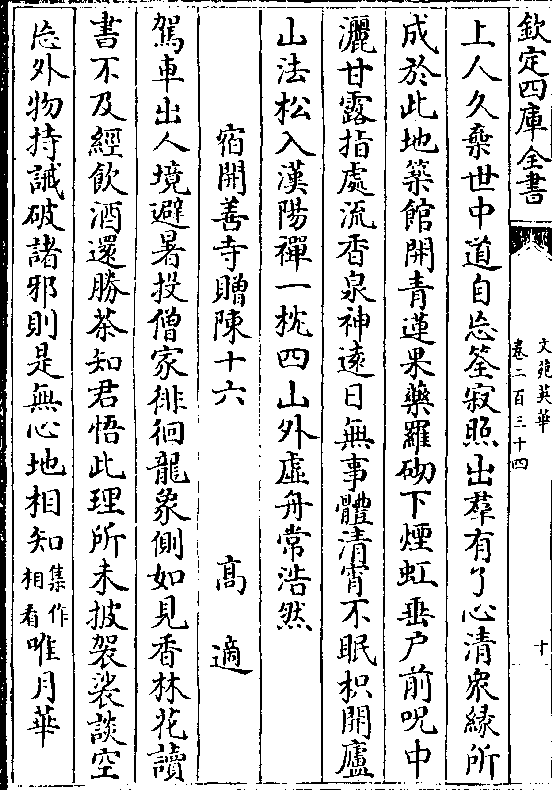 欽定四庫全書
文苑英華
卷二百三十四
十
上人久棄世中道自忘筌寂照出羣有了心清衆緣所
成於此地築館開青蓮果藥羅砌下煙虹垂户前呪中
灑甘露指處流香泉神遠日無事體清宵不眠枳開廬
山法松入漢陽禪一枕四山外虚舟常浩然
宿開善寺贈陳十六
高適
駕車出人境避暑投僧家徘徊龍象側如見香林花讀
書不及經飲酒還勝茶知君悟此理所未披袈裟談空
忘外物持誡破諸邪則是無心地相知集作相看唯月華